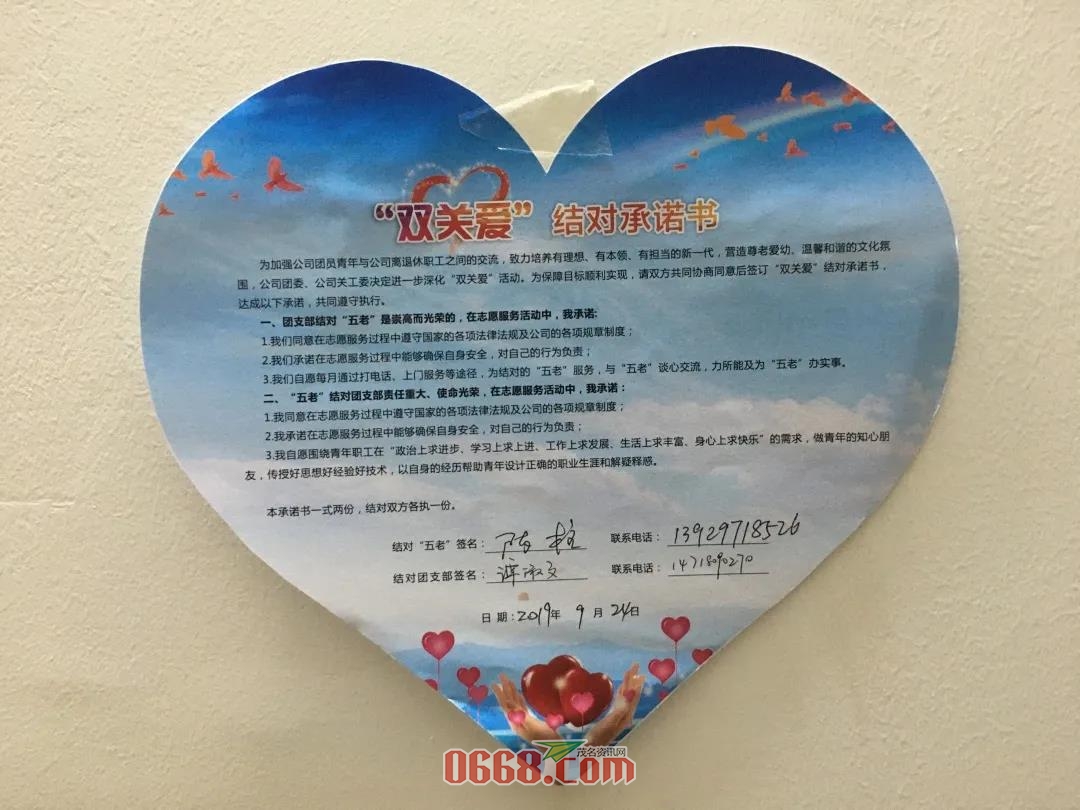 “双关爱” 结对承诺书
为加强公司团员青年与公司离退休职工之间的交流，致力培养有理想、有本领、有担当的新一代，营造尊老爱幼、温馨和谐的文化氛
围，公司团委、公司关工委决定进一步深化“双关爱”活动。为保障目标顺利实现，请双方共同协商同意后签订“双关爱”结对承诺书，
达成以下承诺，共同遵守执行。
一、团支部结对“五老”是崇高而光荣的，在志愿服务活动中，我承诺:
1.我们同意在志愿服务过程中遵守国家的各项法律法规及公司的各项规章制度；
2.我们承诺在志愿服务过程中能够确保自身安全，对自己的行为负责；
3.我们自愿每月通过打电话、上门服务等途径，为结对的“五老”服务，与“五老”谈心交流，力所能及为“五老”办实事。
二、“五老”结对团支部责任重大、使命光荣，在志愿服务活动中，我承诺：
1.我同意在志愿服务过程中遵守国家的各项法律法规及公司的各项规章制度；
2.我承诺在志愿服务过程中能够确保自身安全，对自己的行为负责；
3.我自愿围绕青年职工在“政治上求进步、学习上求上进、工作上求发展、生活上求丰富、身心上求快乐”的需求，做青年的知心朋
友，传授好思想好经验好技术，以自身的经历帮助青年设计正确的职业生涯和解疑释惑。
本承诺书一式两份，结对双方各执一份。
结对“五老”签名： 联系电话：13929718526
结对团支部签名： 联系电话：
日期：2019年 9月 24日
茂名资讯网
0668.com